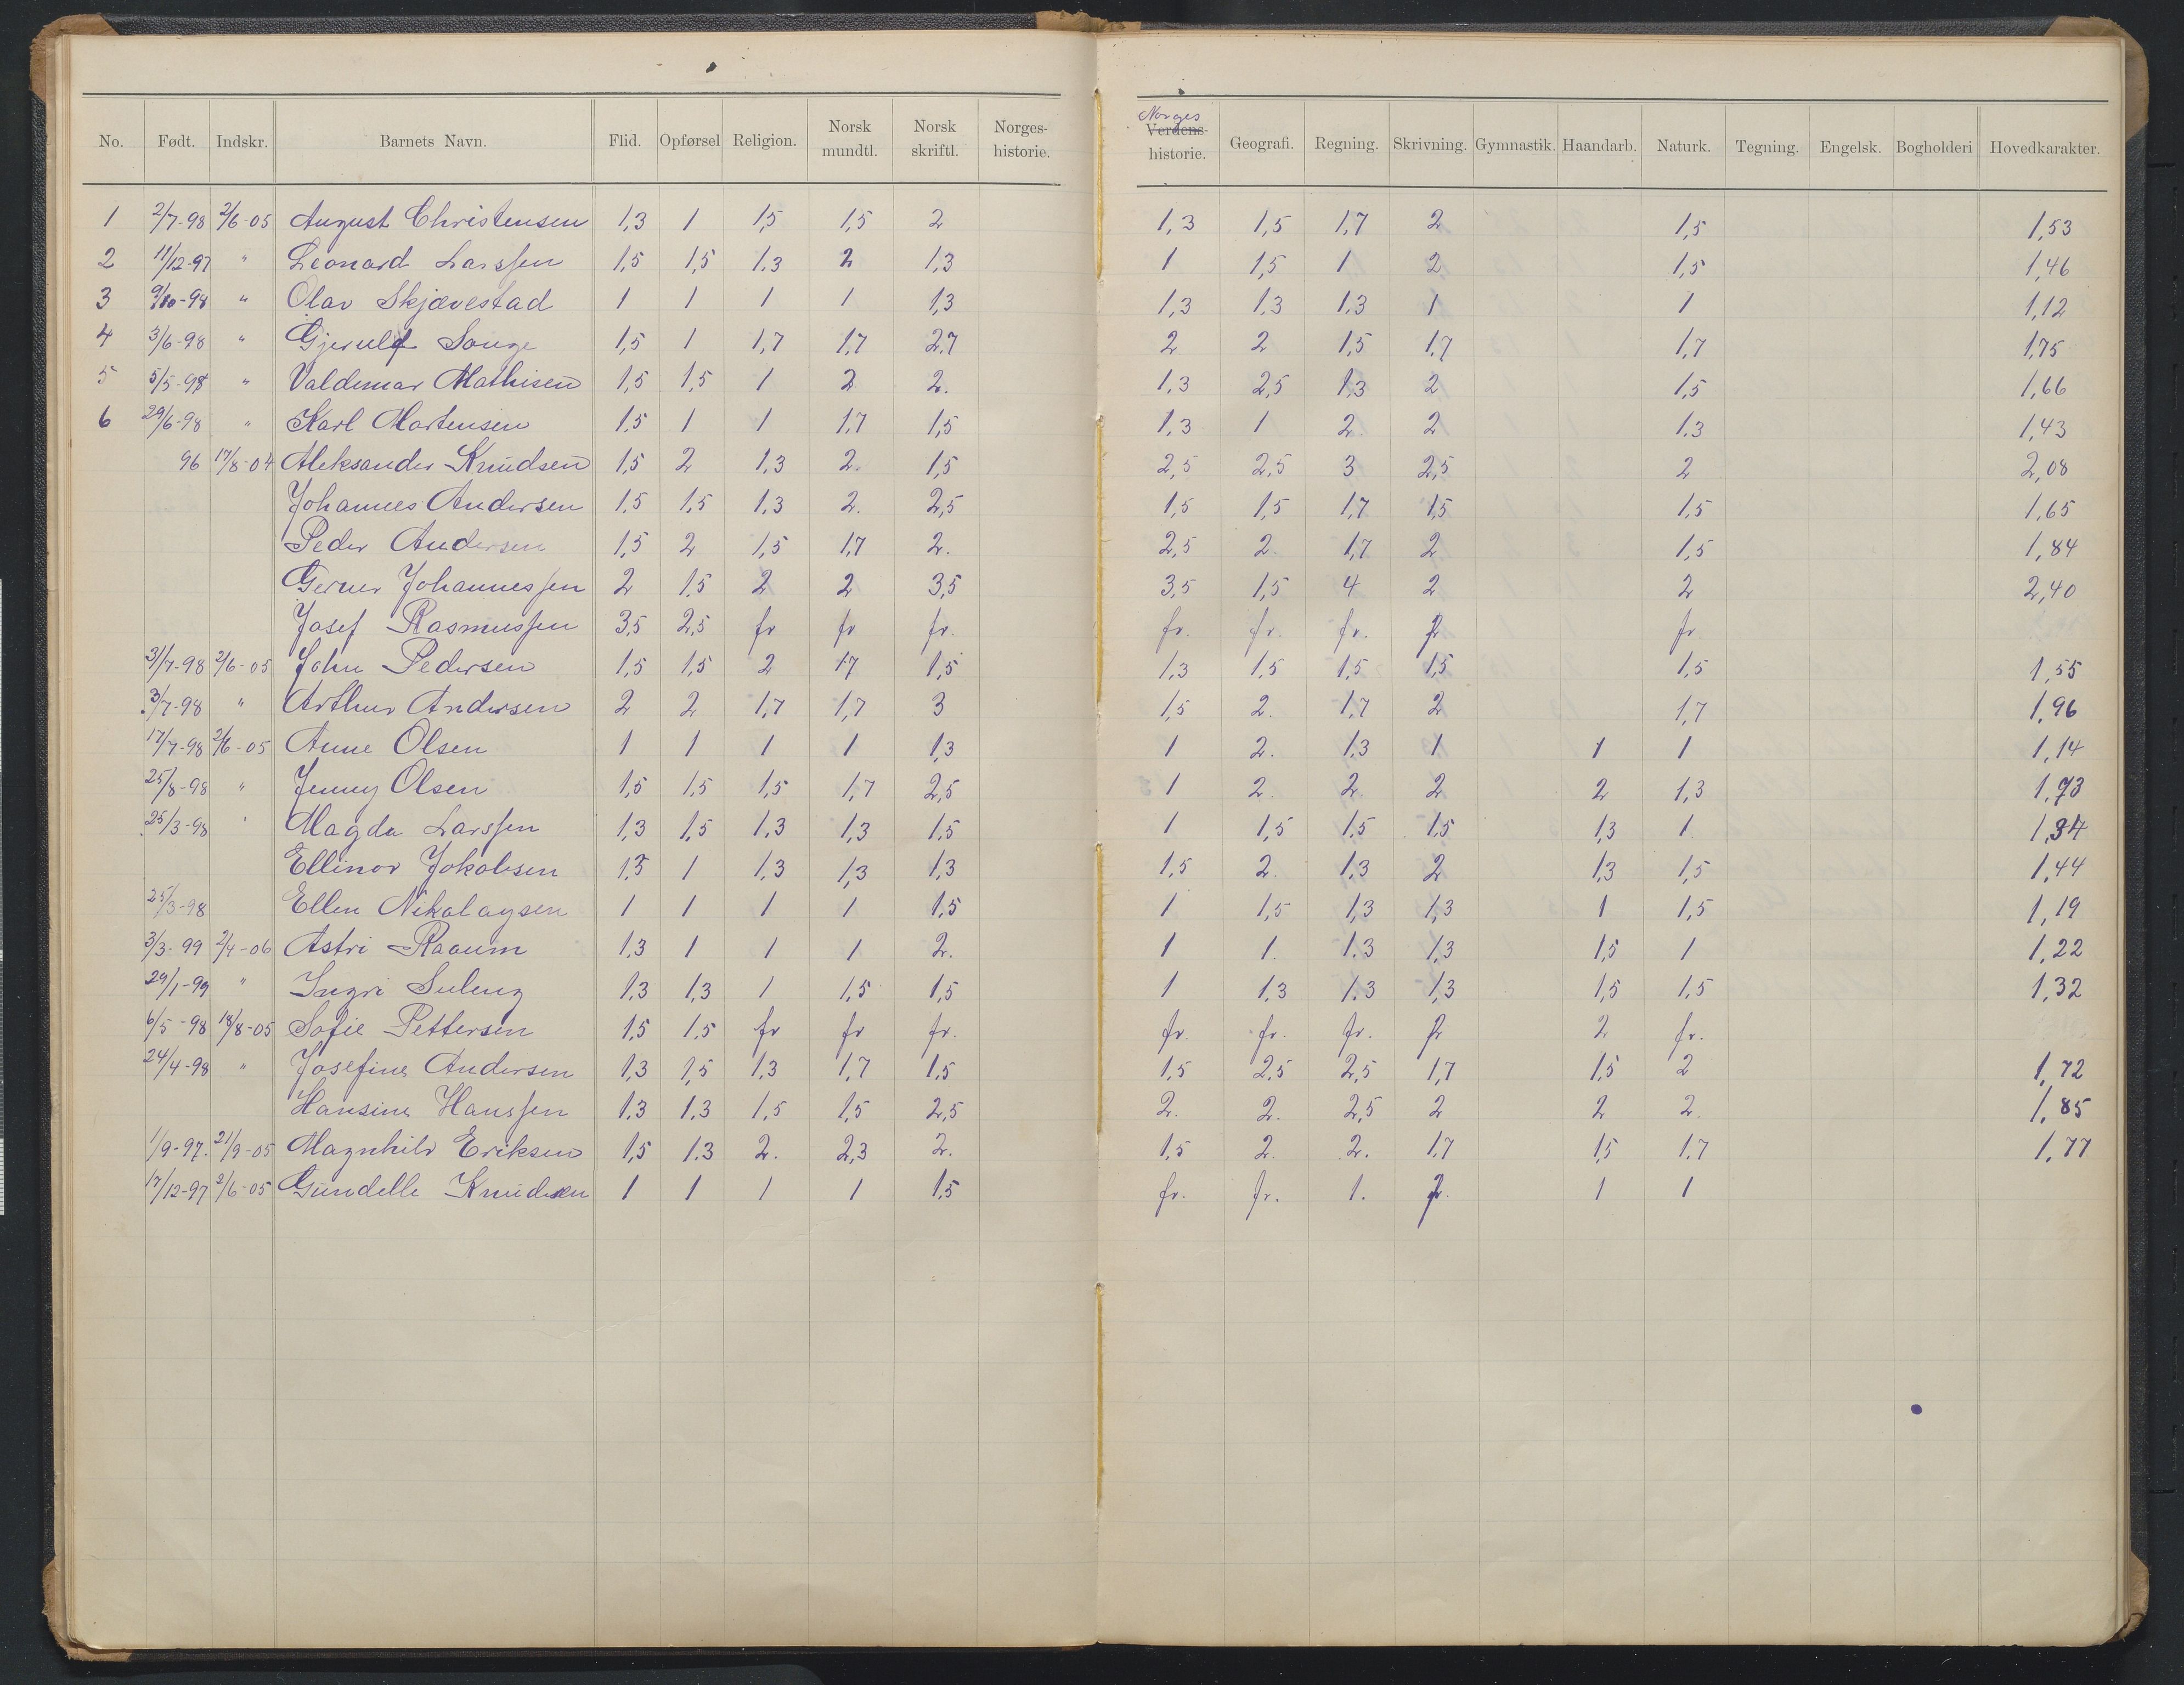 No. Født. Indskr. Barnets Navn. Flid. Opførsel Religion. Norsk mundtl. Norsk skriftl. Norges-historie. Norges Verdens-historie. Geografi. Regning. Skrivning. Gymnastik. Haandarb. Naturk. Tegning. Engelsk. Bogholderi Hovedkarakter.
1 2/7-98 2/6-05 August Christensen 1,3 1 1,5 1,5 2 1,3 1,5 1,7 2 1,5 1,53
2 11/12-97 " Leonard Larssen 1,5 1,5 1,3 2 1,3 1 1,5 1 2 1,5 1,46
3 9/10-98 " Olav Skjævestad 1 1 1 1 1,3 1,3 1,3 1,3 1 1 1,12
4 3/6-98 " Gjerulf Songe 1,5 1 1,7 1,7 2,7 2 2 1,5 1,7 1,7 1,75
5 5/5-98 " Valdemar Mathisen 1,5 1,5 1 2 2. 1,3 2,5 1,3 2 1,5 1,66
6 29/6-98 " Karl Martensen 1,5 1 1 1,7 1,5 1,3 1 2 2 1,3 1,43
96 17/8-04 Aleksander Knudsen 1,5 2 1,3 2. 1,5 2,5 2,5 3 2,5 2 2,08
Johannes Andersen 1,5 1,5 1,3 2. 2,5 1,5 1,5 1,7 1,5 1,5 1,65
Peder Andersen 1,5 2 1,5 1,7 2. 2,5 2. 1,7 2 1,5 1,84
Gerner Johannessen 2 1,5 2 2 3,5 3,5 1,5 4 2 2 2,40
Josef Rasmussen 3,5 2,5 fr fr fr. fr. fr. fr. fr fr.
31/7-98 2/6-05 John Pedersen 1,5 1,5 2 1,7 1,5 1,3 1,5 1,5 1,5 1,5 1,55
3/7-98 " Arthur Andersen 2 2 1,7 1,7 3 1,5 2. 1,7 2 1,7 1,96
17/7-98 2/6-05 Anne Olsen 1 1 1 1 1,3 1 2. 1,3 1 1 1 1,14
25/8-98 " Jenny Olsen 1,5 1,5 1,5 1,7 2,5 1 2 2 2 2 1,3 1,73
25/3-98 " Magda Larssen 1,3 1,5 1,3 1,3 1,5 1 1,5 1,5 1,5 1,3 1 1,34
Ellinor Jokobsen 1,5 1 1,3 1,3 1,3 1,5 2. 1,3 2 1,3 1,5 1,44
25/3-98 Ellen Nikolaysen 1 1 1 1 1,5 1 1,5 1,3 1,3 1 1,5 1,19
3/3-99 2/4-06 Astri Raaum 1,3 1 1 1 2. 1 1. 1,3 1,3 1,5 1 1,22
29/1-99 " Ingri Suleng 1,3 1,3 1 1,5 1,5 1 1,3 1,3 1,3 1,5 1,5 1,32
6/5-98 18/8-05 Sofie Pettersen 1,5 1,5 fr fr fr. fr. fr. fr. fr 2 fr.
24/4-98 " Josefine Andersen 1,3 1,5 1,3 1,7 1,5 1,5 2,5 2,5 1,7 1,5 2 1,72
Hansine Hanssen 1,3 1,3 1,5 1,5 2,5 2. 2. 2,5 2 2 2. 1,85
1/9-97. 21/9-05 Magnhild Eriksen 1,5 1.3 2. 2,3 2. 1,5 2. 2. 1,7 1,5 1,7 1,77
17/12-97 2/6-05 Gundelle Knudsen 1 1 1 1 1,5 fr. fr. 1. fr. 1 1